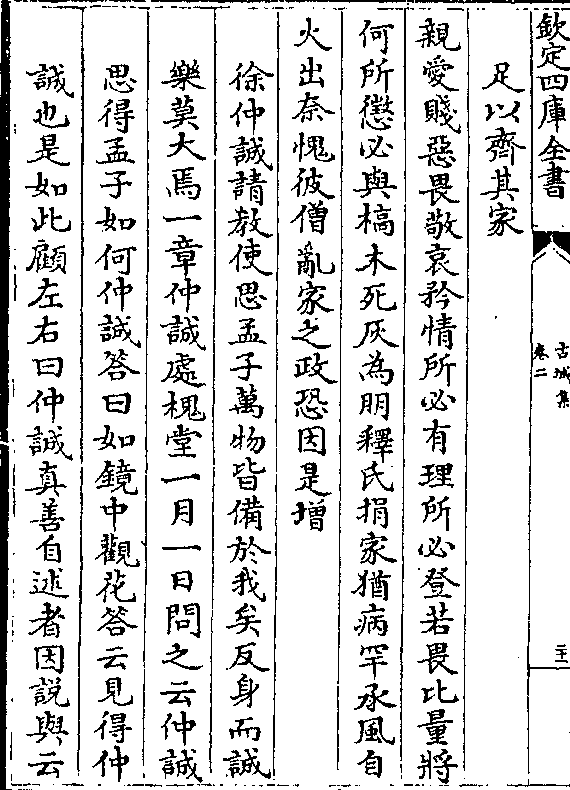 欽定四庫全書
古城集
卷二
二十一
足以齊其家
親愛賤惡畏敬哀矜情所必有理所必登若畏比量將
何所懲必與槁木死灰為朋釋氏捐家猶病罕承風自
火出奈愧彼僧亂家之政恐因是增
徐仲誠請教使思孟子萬物皆備於我矣反身而誠
樂莫大焉一章仲誠處槐堂一月一日問之云仲誠
思得孟子如何仲誠答曰如鏡中觀花答云見得仲
誠也是如此顧左右曰仲誠真善自述者因說與云